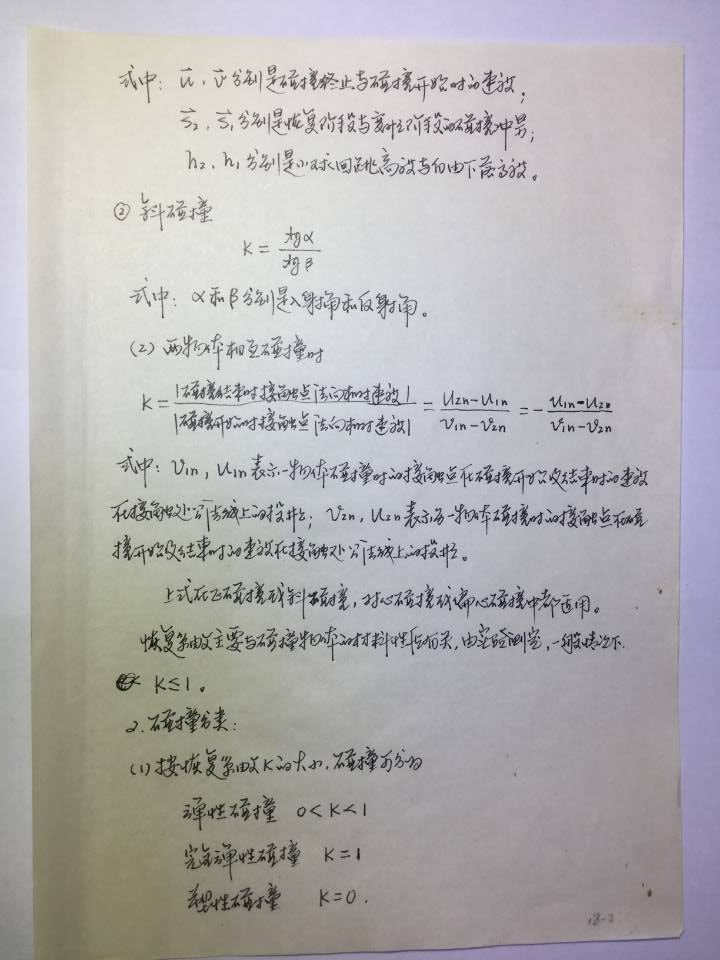 式中: u⃗, v⃗ 分别是碰撞终止与碰撞开始时的速度;
s⃗₂, s⃗₁ 分别是恢复阶段与变形阶段的碰撞冲量;
h₂, h₁ 分别是小球回跳高度与自由下落高度。
② 斜碰撞
K = tgα / tgβ
式中: α和β分别是入射角和反射角。
(2) 两物体相互碰撞时
K = |碰撞结束时接触点法向相对速度| / |碰撞开始时接触点法向相对速度| = (u₂n − u₁n) / (v₁n − v₂n) = − (u₁n − u₂n) / (v₁n − v₂n)
式中: v₁n, u₁n 表示一物体碰撞时的接触点在碰撞开始及结束时的速度
在接触处公法线上的投影; v₂n, u₂n 表示另一物体碰撞时的接触点在碰
撞开始及结束时的速度在接触处公法线上的投影。
上式在正碰撞或斜碰撞, 对心碰撞或偏心碰撞中都适用。
恢复系数主要与碰撞物体的材料性质有关, 由实验测定, 一般情况下
K ≤ 1。
2. 碰撞分类:
(1) 按恢复系数K的大小, 碰撞可分为
弹性碰撞 0 < K < 1
完全弹性碰撞 K = 1
塑性碰撞 K = 0.
18-2